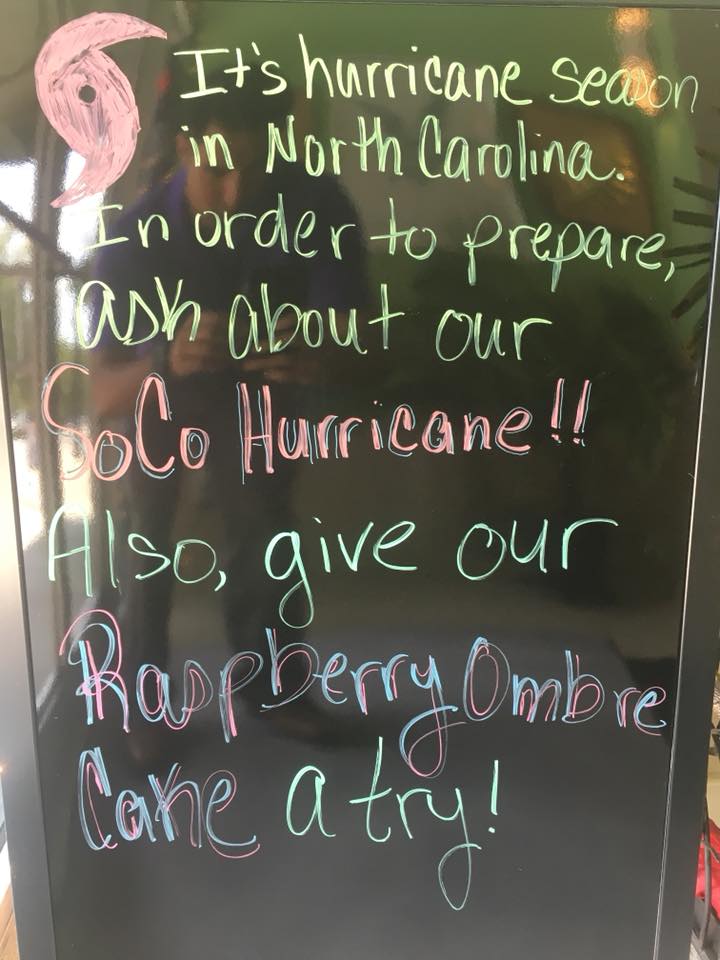 It's hurricane season
in North Carolina.
In order to prepare,
ask about our
SoCo Hurricane!!
Also, give our
Raspberry Ombre
Cake a try!